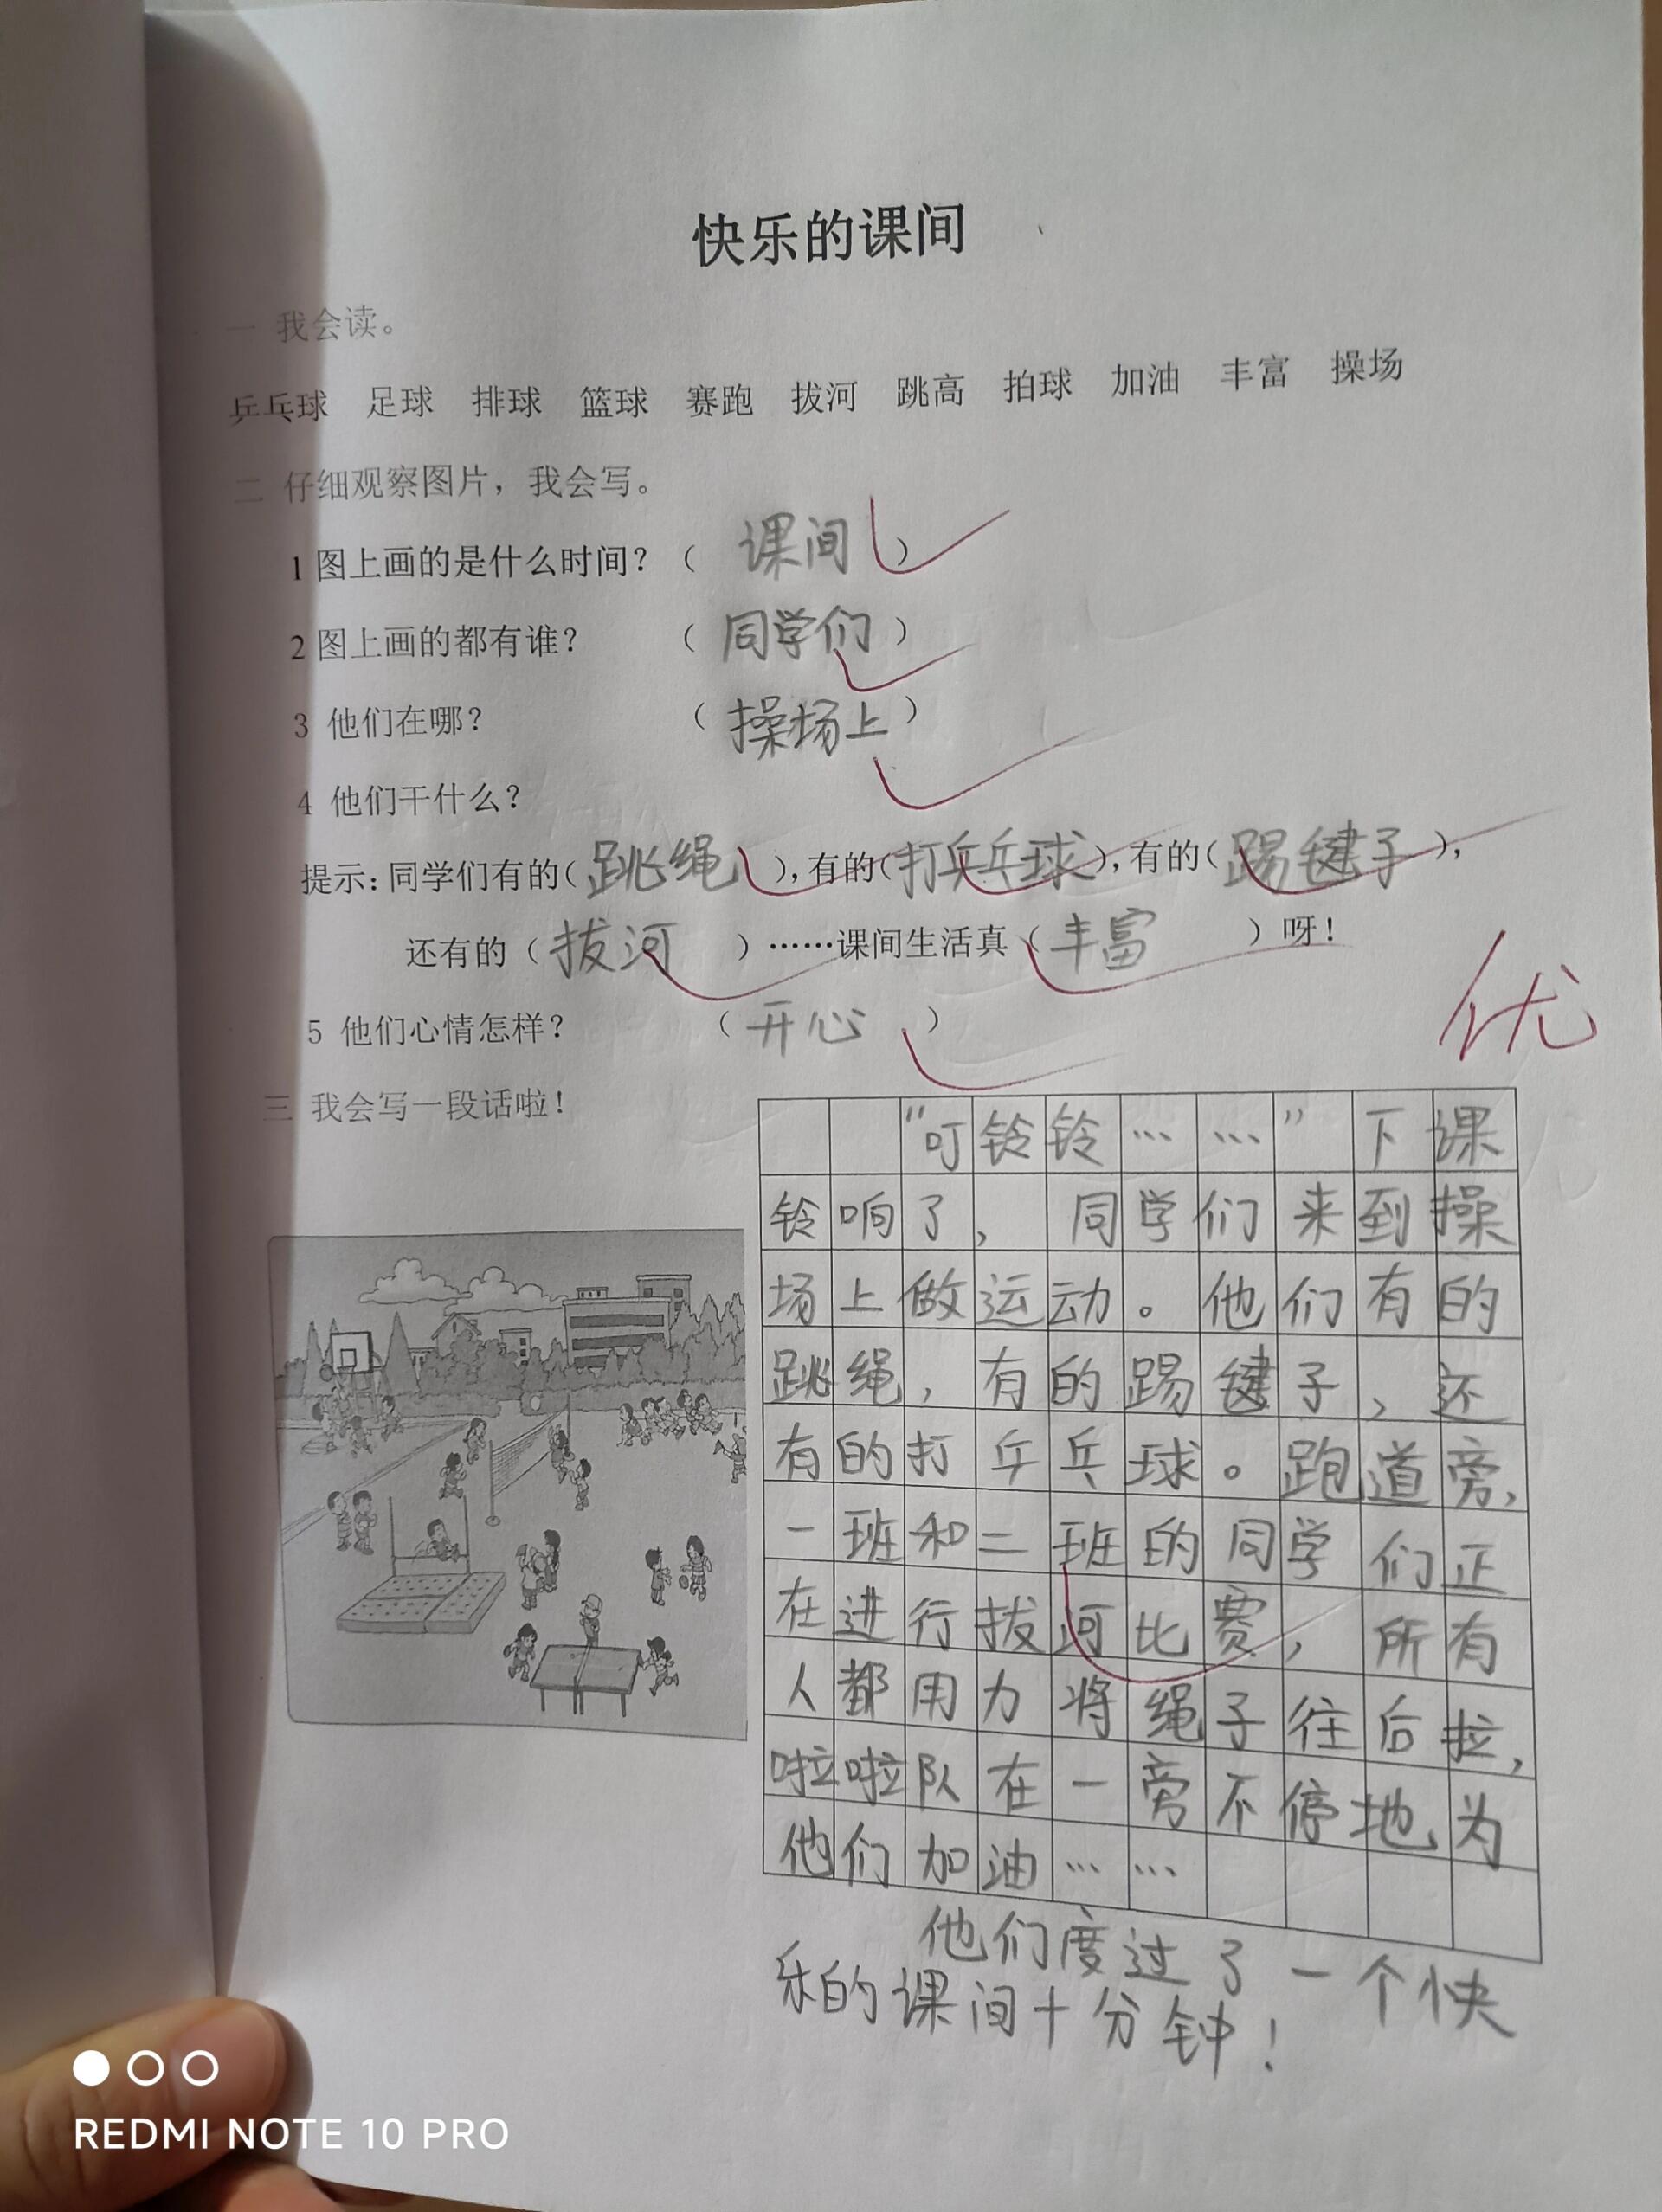 快乐的课间
一 我会读。
乒乓球 足球 排球 篮球 赛跑 拔河 跳高 拍球 加油 丰富 操场
二 仔细观察图片，我会写。
1 图上画的是什么时间？（ 课间 ）
2 图上画的都有谁？ （ 同学们 ）
3 他们在哪？ （ 操场上 ）
4 他们干什么？
提示：同学们有的（ 跳绳 ），有的（打乒乓球），有的（踢毽子），
还有的（ 拔河 ）……课间生活真（ 丰富 ）呀！
5 他们心情怎样？ （ 开心 ）
优
三 我会写一段话啦！
“叮铃铃……”下课
铃响了，同学们来到操
场上做运动。他们有的
跳绳，有的踢毽子，还
有的打乒乓球。跑道旁，
一班和二班的同学们正
在进行拔河比赛，所有
人都用力将绳子往后拉，
啦啦队在一旁不停地为
他们加油……
他们度过了一个快
乐的课间十分钟！
REDMI NOTE 10 PRO